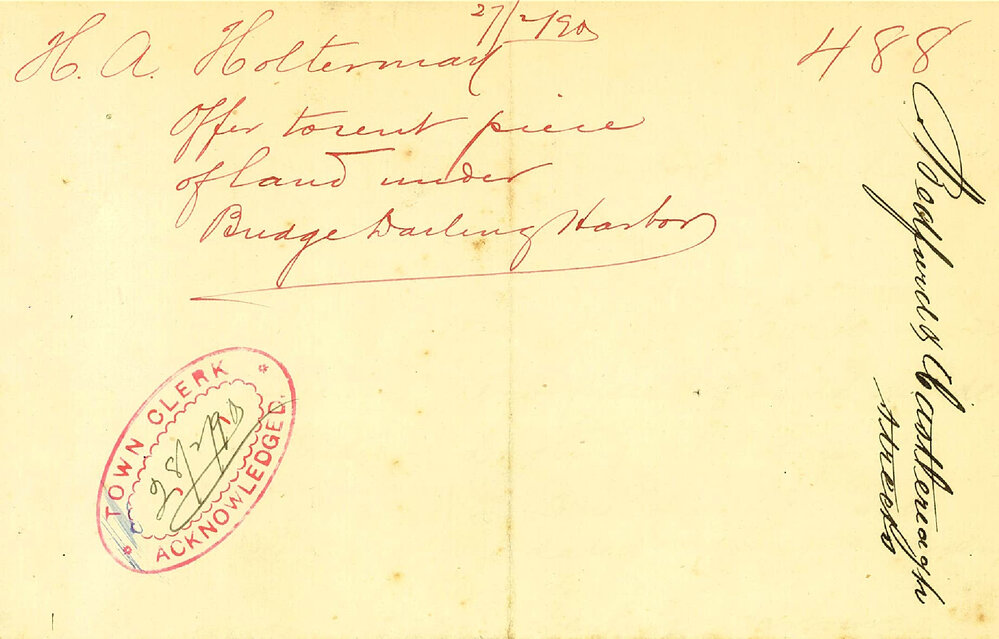 27/2/90
H. A. Holterman
488
Offer to rent piece
of land under
Bridge Darling Harbor
TOWN CLERK
28/2/90
ACKNOWLEDGED.
Bedford & Castlereagh
Streets